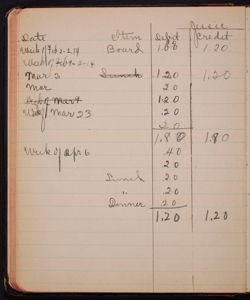 Jessie
Date Item Debit Credit
Week of Feb 2-14 Board 1.08 1.20
Week of Feb 2-14
Mar 2 Lunch 1.20 1.20
Mar 20
Mar 1.20
Week of Mar 23 .20
20
1.80 1.80
Week of Apr 6 40
20
Lunch 20
" .20
Dinner .20
1.20 1.20